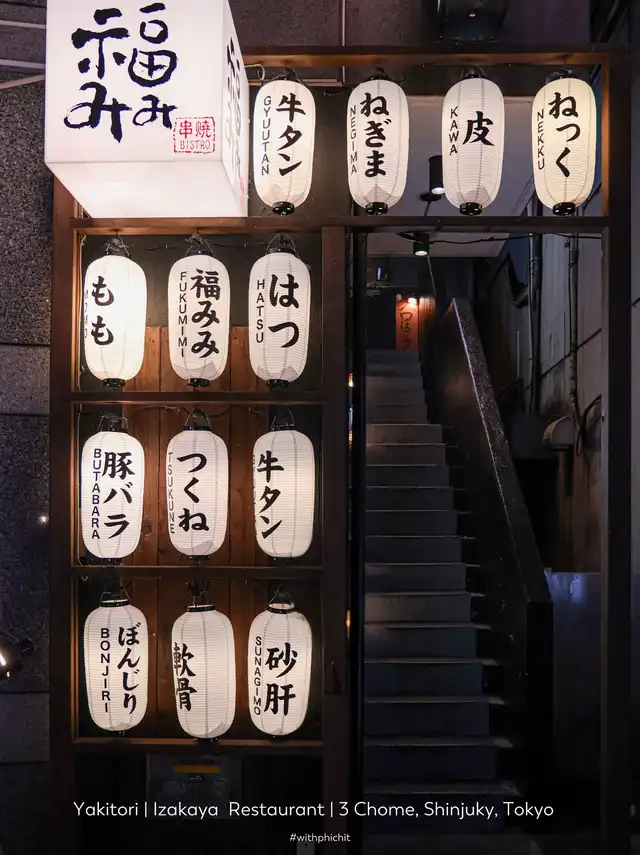 福みみ
串焼
BISTRO
牛タン
GYUUTAN
ねぎま
NEGIMA
皮
KAWA
ねっく
NEKKU
もも
福みみ
FUKUMIMI
はつ
HATSU
豚バラ
BUTABARA
つくね
TSUKUNE
牛タン
ぼんじり
BONJIRI
軟骨
砂肝
SUNAGIMO
Yakitori | Izakaya Restaurant | 3 Chome, Shinjuky, Tokyo
#withphichit